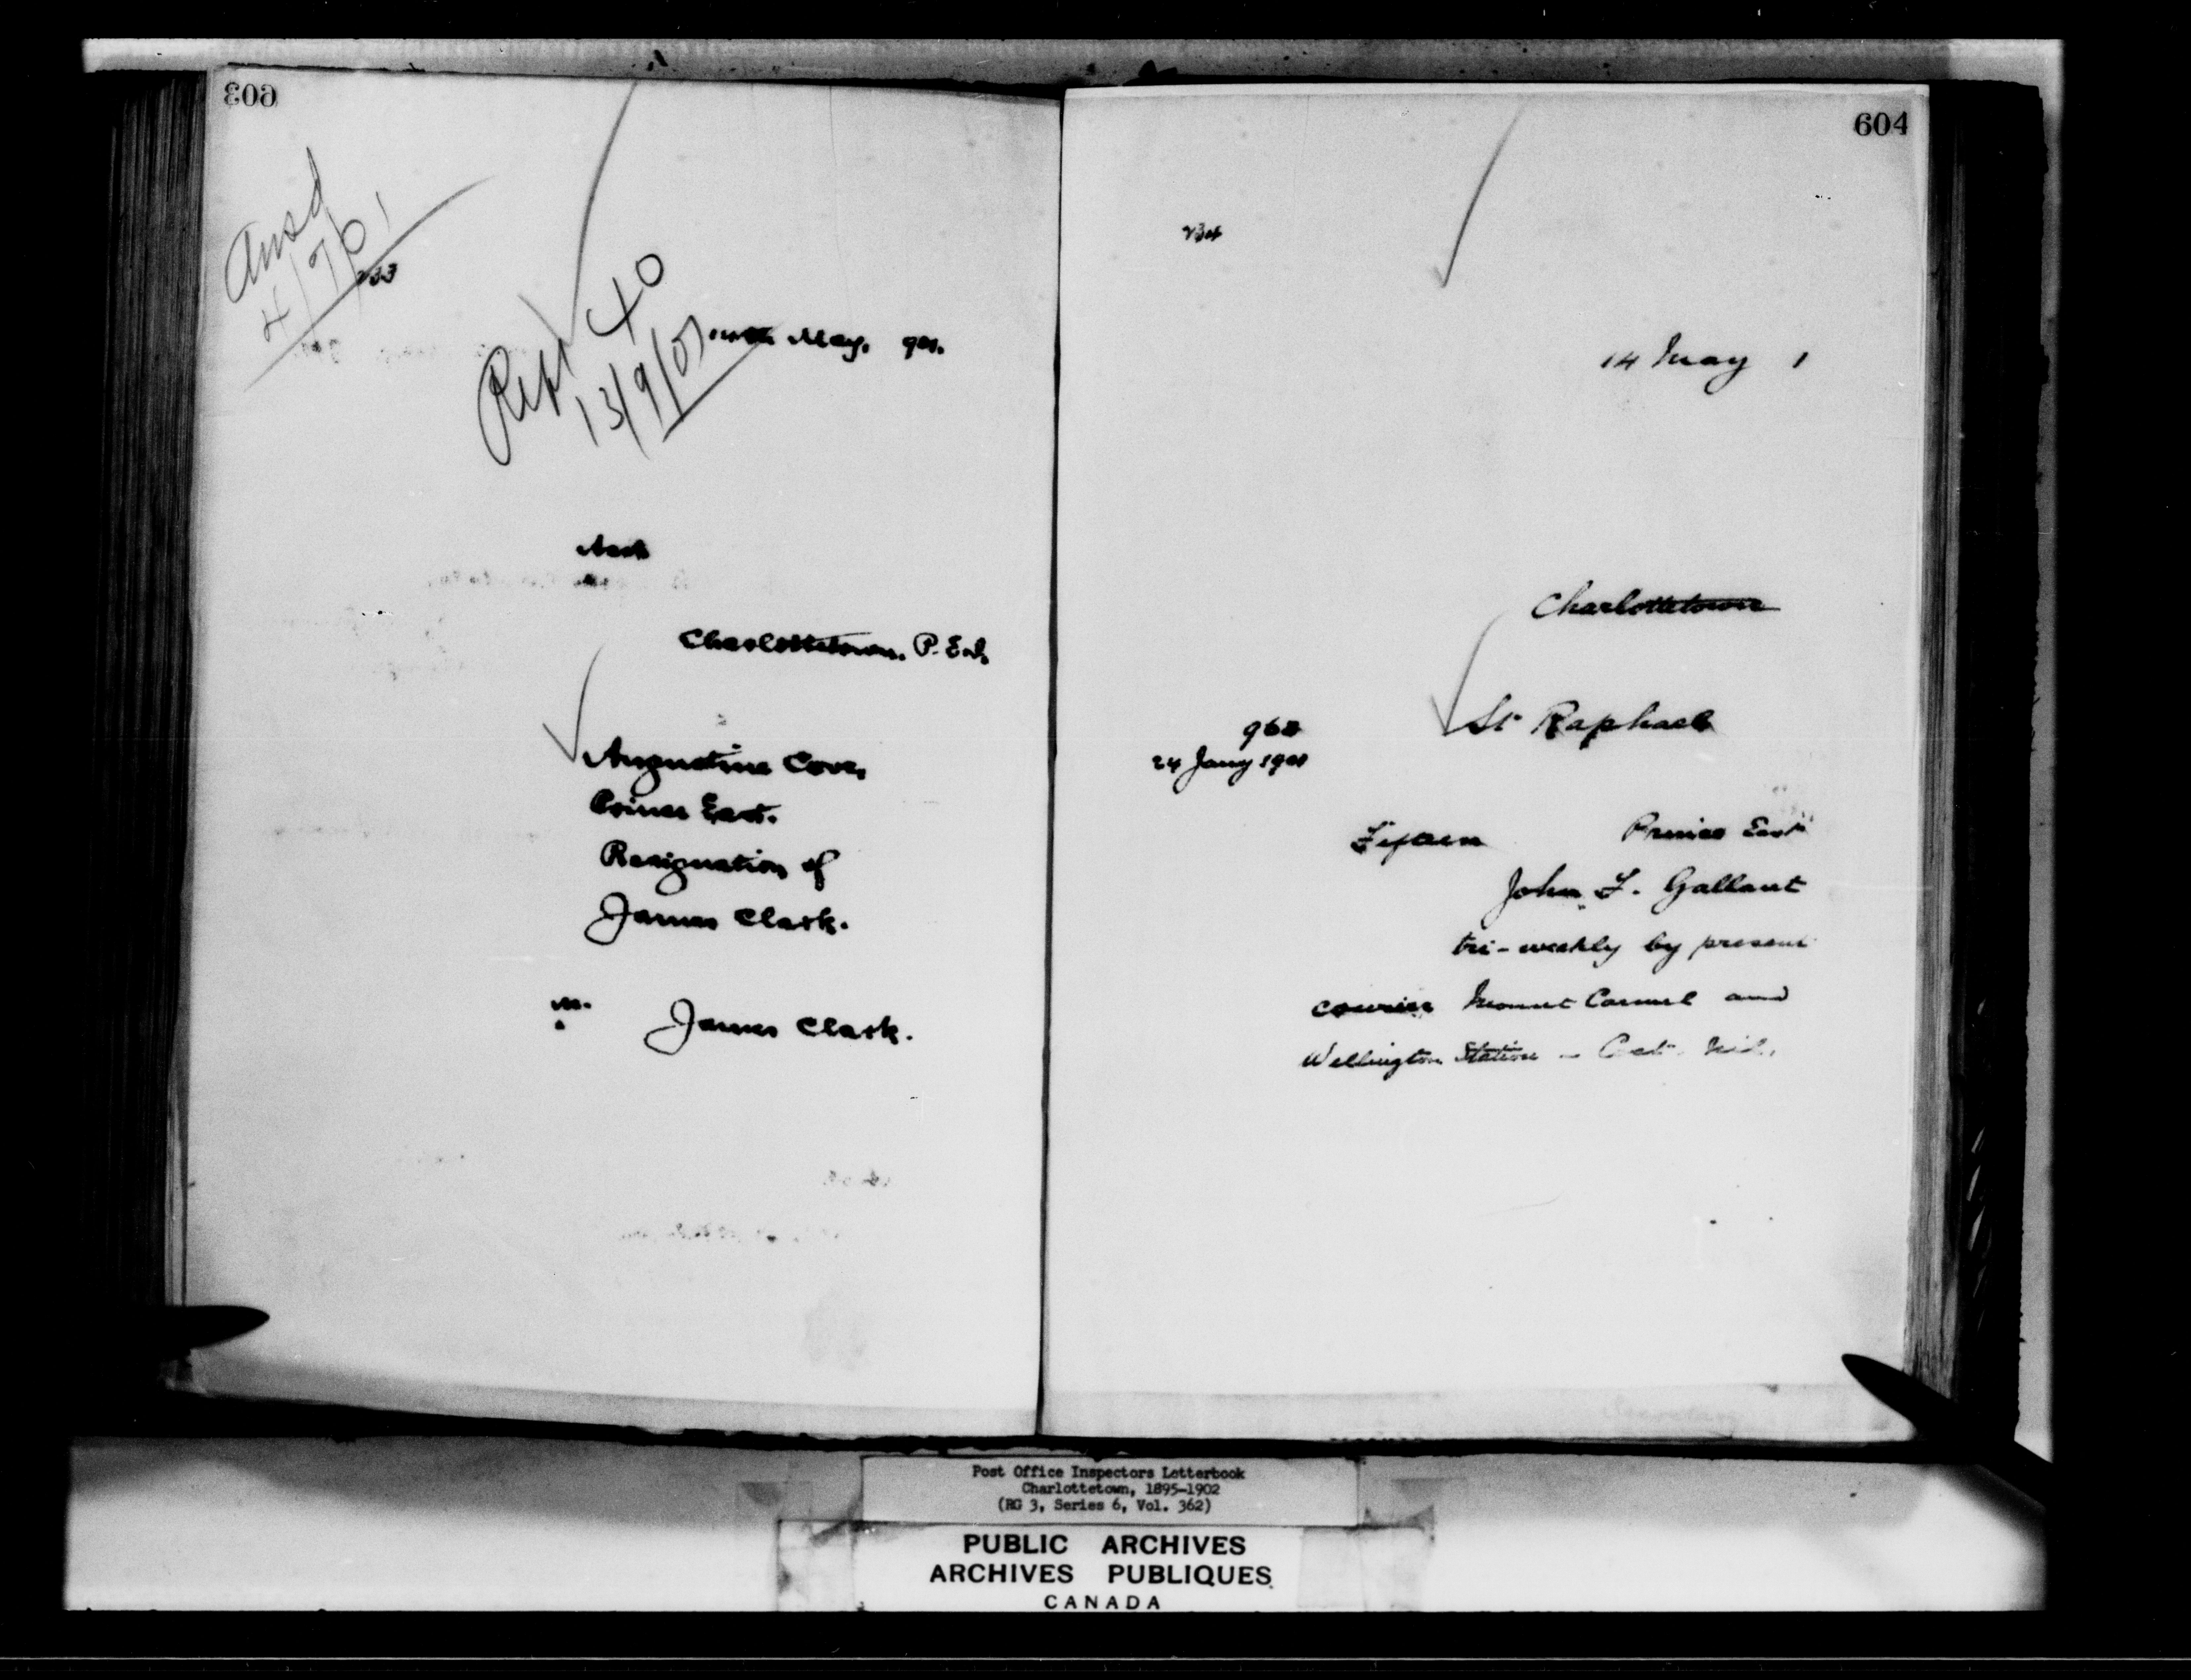 603
Ansd
4/7/01
233
Rept 40
13/9/01
14th May, 901.
Charlottetown, P.E.I.
Augustine Cove,
Prince East.
Resignation of
James Clark.
M.
James Clark.
604
234
14 May 1
Charlottetown
St Raphael
968
24 Jany 1901
Fifteen Prince East
John F. Gallant
tri-weekly by present
courier Mount Carmel and
Wellington Station - Cost Nil.
Post Office Inspectors Letterbook
Charlottetown, 1895-1902
(RG 3, Series 6, Vol. 362)
PUBLIC ARCHIVES
ARCHIVES PUBLIQUES
CANADA